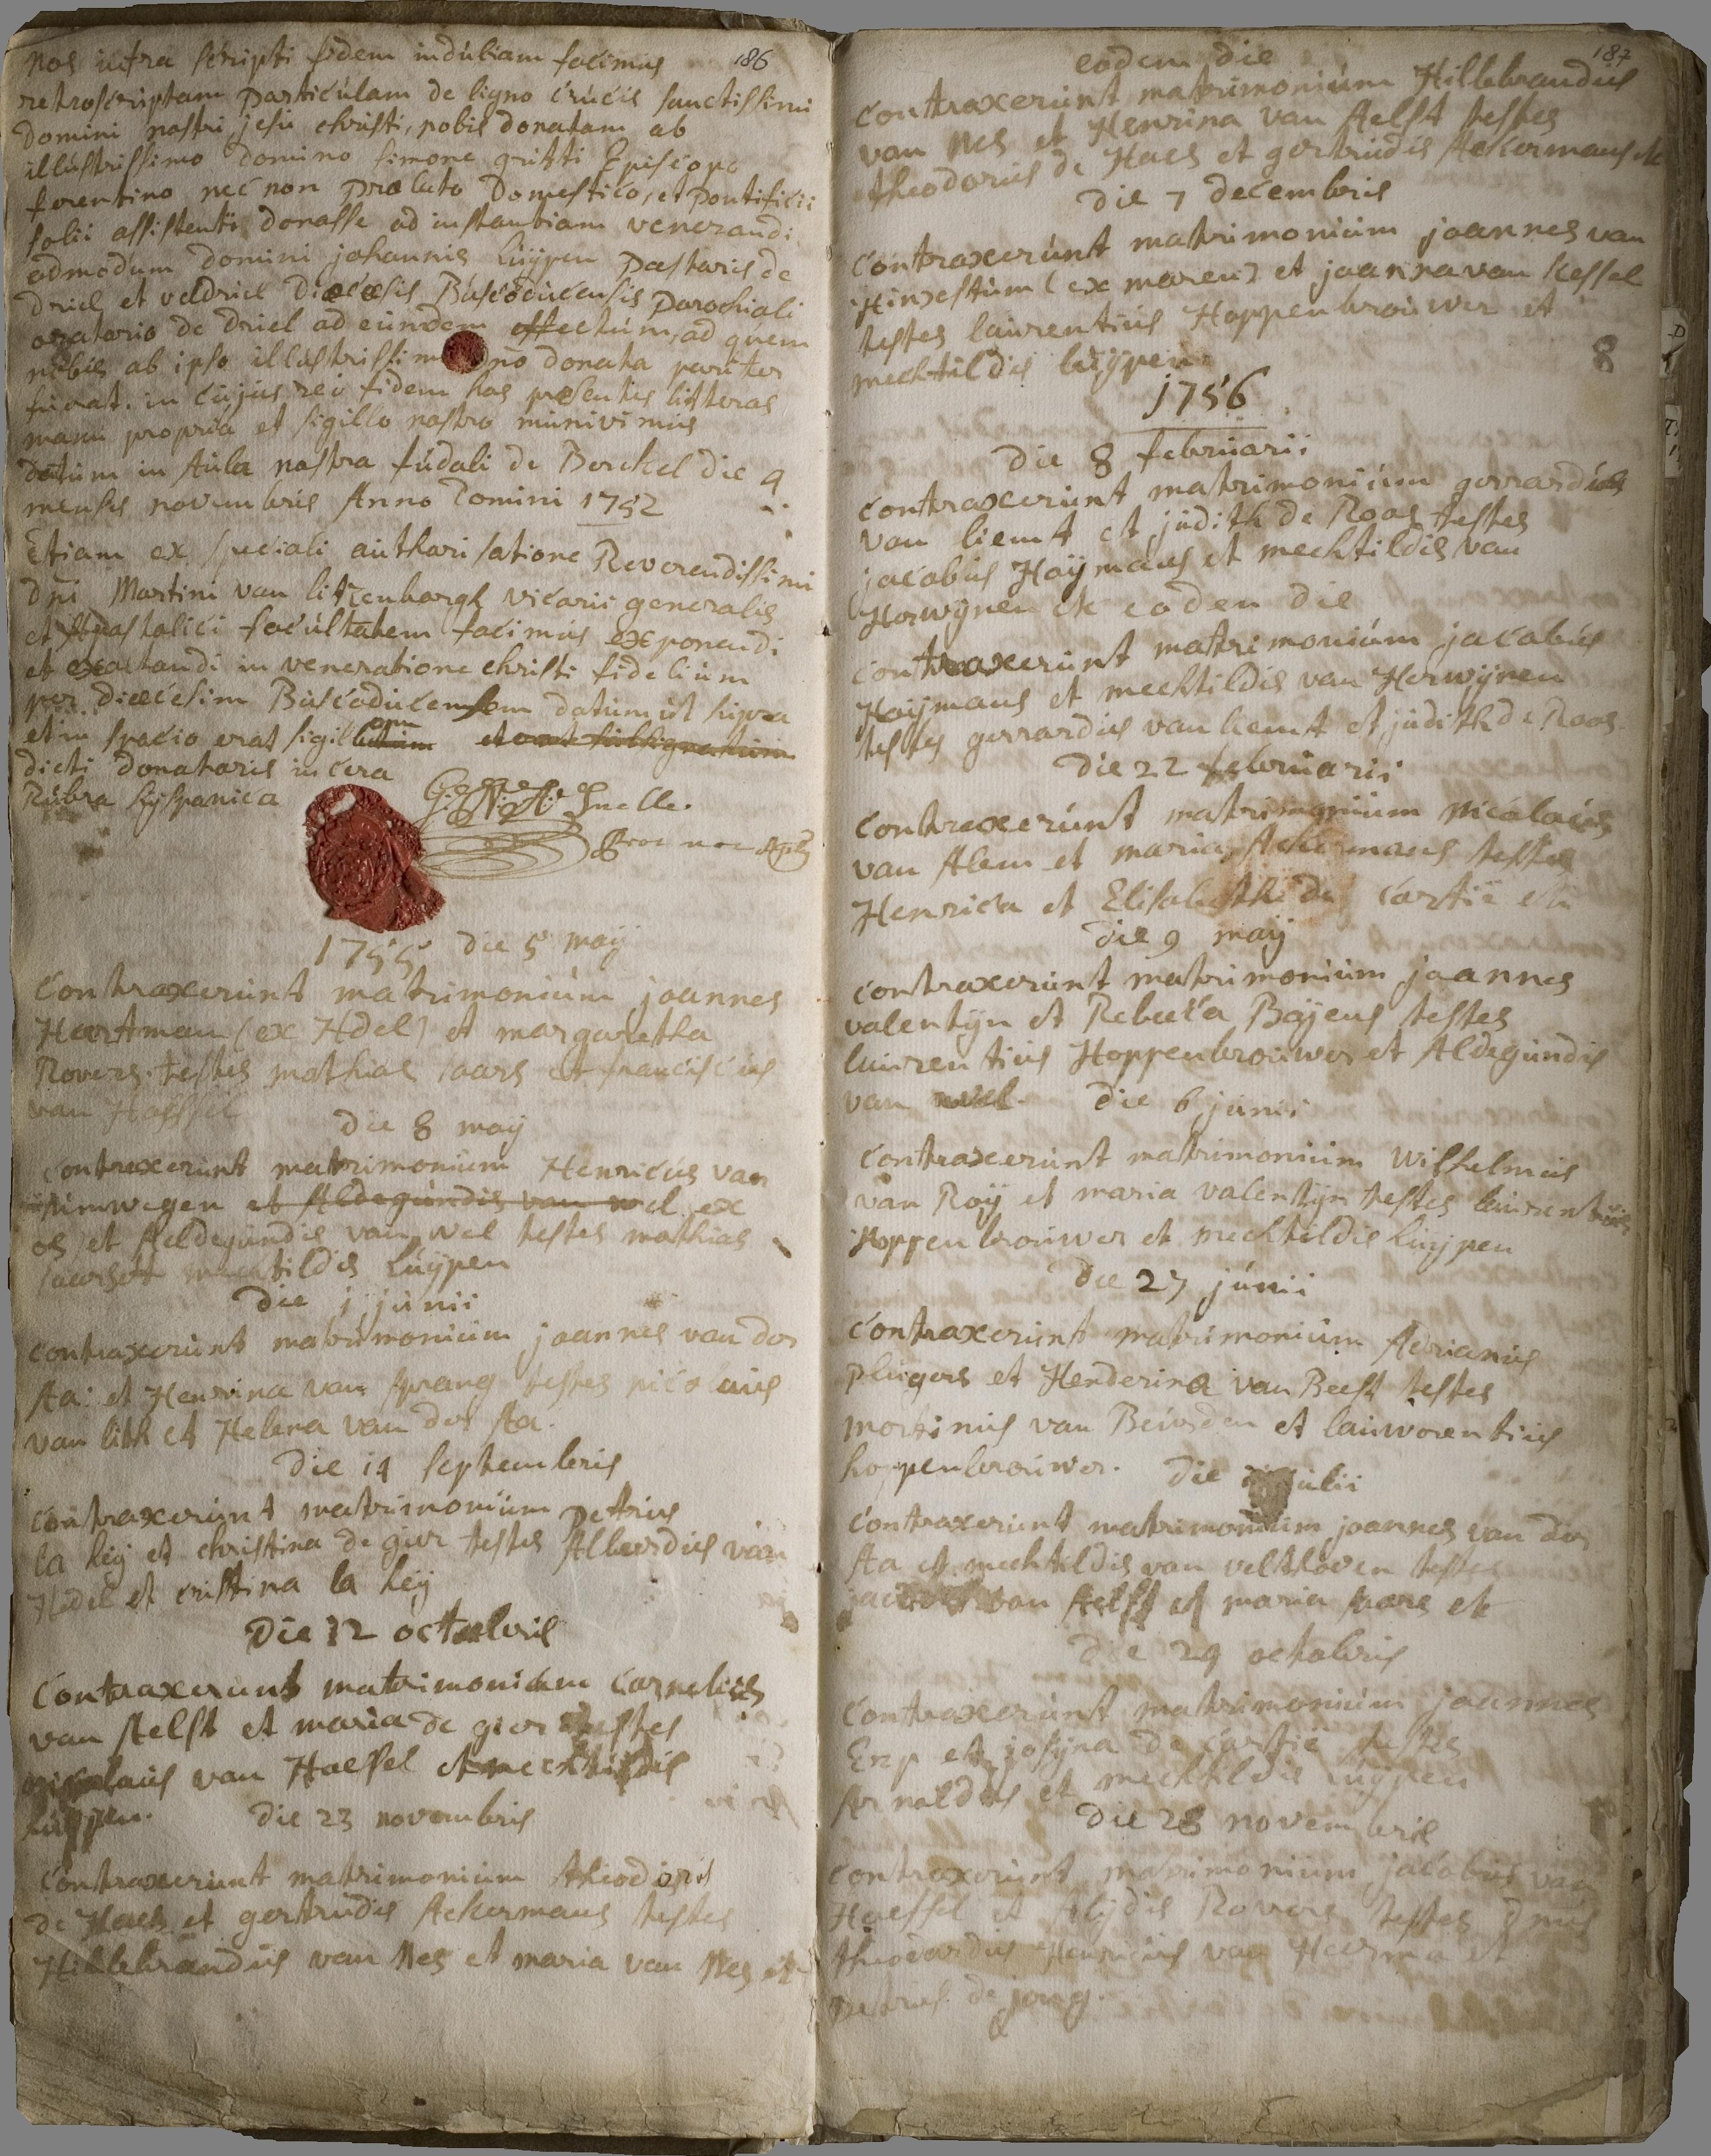 186
nos infra scripti fidem indubiam facimus
retroscriptam particulam de ligno crucis sanctissimi
Domini nostri jesu christi, nobis donatam ab
illustrissimo Domino simone gritti Episcopo
ferentino nec non prælato Domestico, et Pontificii
solii assistenti donasse ad instantiam venerandi
admodum Domini johannis Luijpen Pastoris de
Driel et veldriel Diœcesis Buscoducensis Parochiali
oratorio de driel ad eundem effectum, ad quem
nobis ab ipso illustrissimo dno donata pariter
fuerat. in cujus rei fidem has præsentes litteras
manu propria et sigillo nostro munivimus
datum in Aula nostra fudali de Berckel die 9
mensis novembris Anno Domini 1752
Etiam ex speciali authorisatione Reverendissimi
Dni Martini van litzenborgh vicarii generalis
et Apostolici facultatem facimus exponendi
et exactandi in veneratione christi fidelium
per diœcesim Buscoducensem datum ut supra
et in spacio erat sigillum et erat subsignatum
dicti donatoris in cera
Rubra hijspanica
1755 die 5 maij
Contraxerunt matrimonium joannes
Hartman (ex Hdel) et margaretha
Rovers. testes mathias saars et franciscus
van Hassel
die 8 maij
Contraxerunt matrimonium Henricus van
nimwegen et Aldegundis van wel ex
os et Aldegundis van wel testes mathias
saars et mechtildis Luijpen
die 1 junii
Contraxerunt matrimonium joannes van der
Aa: et Henrina van sprang testes nicolaus
van lith et Helena van der Aa.
die 14 septembris
Contraxerunt matrimonium Petrus
la heij et christina de gier testes Alberdus van
Hedel et cristina la heij
Die 12 octobris
Contraxerunt matrimonium Cornelius
van Aelst et maria de gier testes
nicolaus van Haessel et mechtildis
luijpen. die 23 novembris
Contraxerunt matrimonium theodorus
de Haes et gertrudis Ackermans testes
Hillebrandus van Nes et maria van Nes etc
187
eodem die
Contraxerunt matrimonium Hillebrandus
van Nes et Henrina van Aelst testes
theodorus de Haes et gertrudis Ackermans etc
die 7 decembris
Contraxerunt matrimonium joannes van
Hinxstum (ex maren) et joanna van kessel
testes laurentius Hoppenbrouwer et
mechtildis luijpen
1756
die 8 februarii
Contraxerunt matrimonium gerrardus
van liemt et judith de Roos testes
jacobus Hoijmans et mechtildis van
Herwijnen etc eodem die
Contraxerunt matrimonium jacobus
Hoijmans et mechtildis van Herwijnen
testes gerrardus van liemt et judith de Roos
die 22 februarii
Contraxerunt matrimonium nicolaus
van Alem et maria Ackermans testes
Henrica et Elisabeth de Cartië etc
die 9 maij
Contraxerunt matrimonium joannes
valentijn et Rebecca Baijens testes
laurentius Hoppenbrouwer et Aldegundis
van wel. die 6 junii
Contraxerunt matrimonium Wilhelmus
van Roij et maria valentijn testes laurentius
Hoppenbrouwer et mechtildis luijpen
die 27 junii
Contraxerunt matrimonium Adrianus
plugers et Henderina van Beest testes
martinus van Beusden et lauworentius
hoppenbrouwer. die julii
Contraxerunt matrimonium joannes van der
Aa et mechtildis van velthoven testes
van Aelst et maria saars etc
die 29 octobris
Contraxerunt matrimonium joannes
Enp et josijna de Cartië testes
Arnoldus et mechtildis luijpen
die 28 novembris
Contraxerunt matrimonium jacobus van
Haessel et Alijdis Rovers testes dnus
theodardus Henricus van Heerma et
petrus de jong.